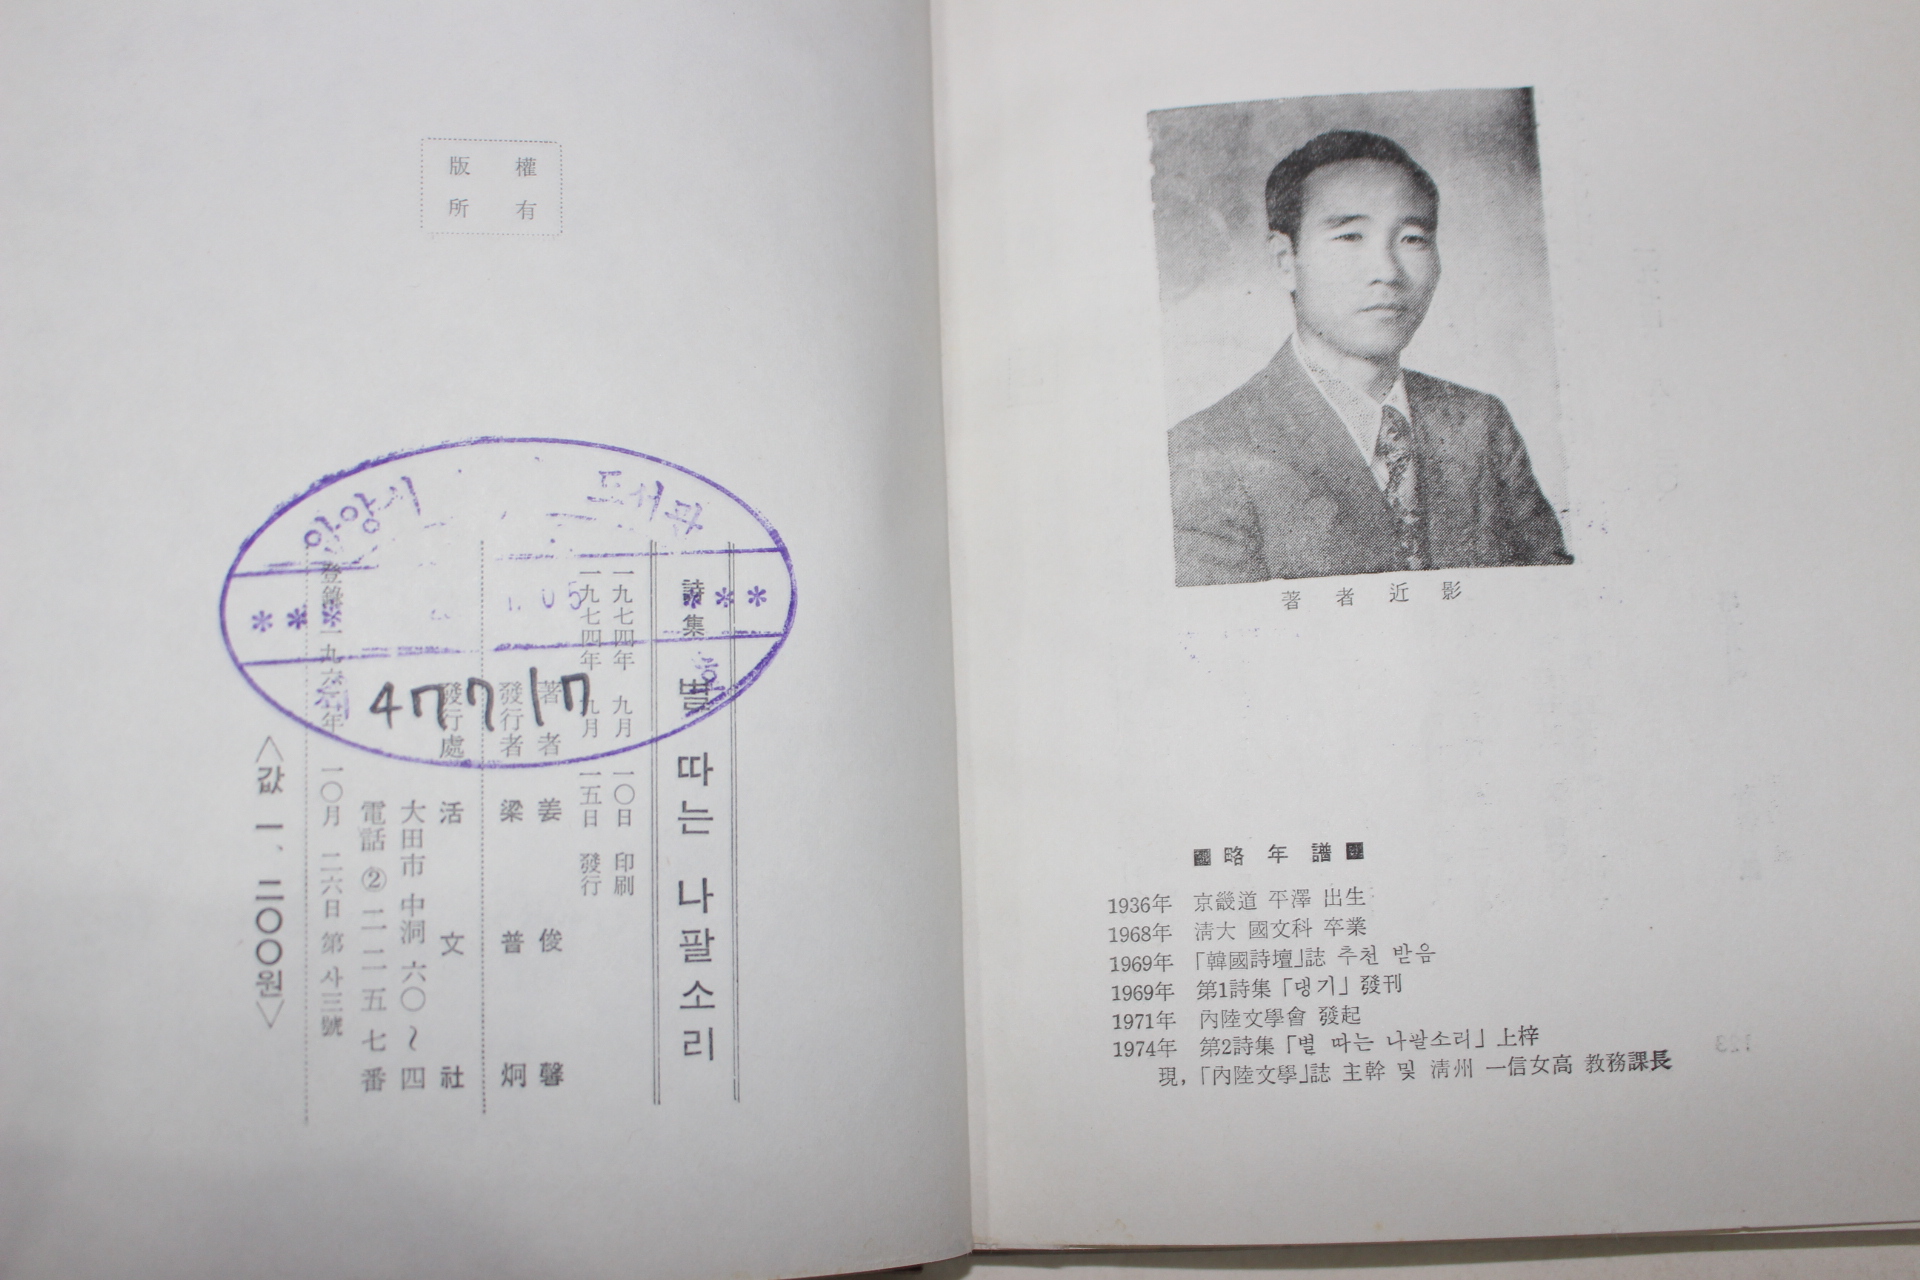 版權
所有
詩集 별 따는 나팔소리
一九七四年 九月 一〇日 印刷
一九七四年 九月 一五日 發行
著者 姜俊馨
發行者 梁普炯
發行處 活文社
大田市 中洞 六〇～四
電話 ② 二一二五七番
一〇月 二六日 第 사三號
〈값 一、二〇〇원〉
안양시 도서관
*** ***
47717
著者近影
略年譜
1936年 京畿道 平澤 出生
1968年 淸大 國文科 卒業
1969年 「韓國詩壇」誌 추천 받음
1969年 第1詩集「댕기」發刊
1971年 內陸文學會 發起
1974年 第2詩集「별 따는 나팔소리」上梓
現,「內陸文學」誌 主幹 및 淸州 一信女高 敎務課長